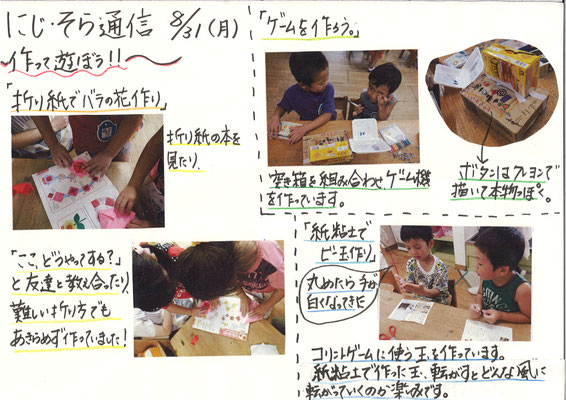 にじ・そら通信 8/31(月)
作って遊ぼう!!
「折り紙でバラの花作り」
折り紙の本を
見たり、
「ここ、どうやってする?」
と友達と教え合ったり、
難しい折り方でも
あきらめず作っていました!
「ゲームを作ろう。」
空き箱を組み合わせゲーム機
を作っています。
ボタンはクレヨンで
描いて本物っぽく。
「紙粘土で
ビー玉作り」
丸めたら手が
白くなってきた
コリントゲームに使う玉を作っています。
紙粘土で作った玉、転がすとどんな風に
転がっていくのか楽しみです。